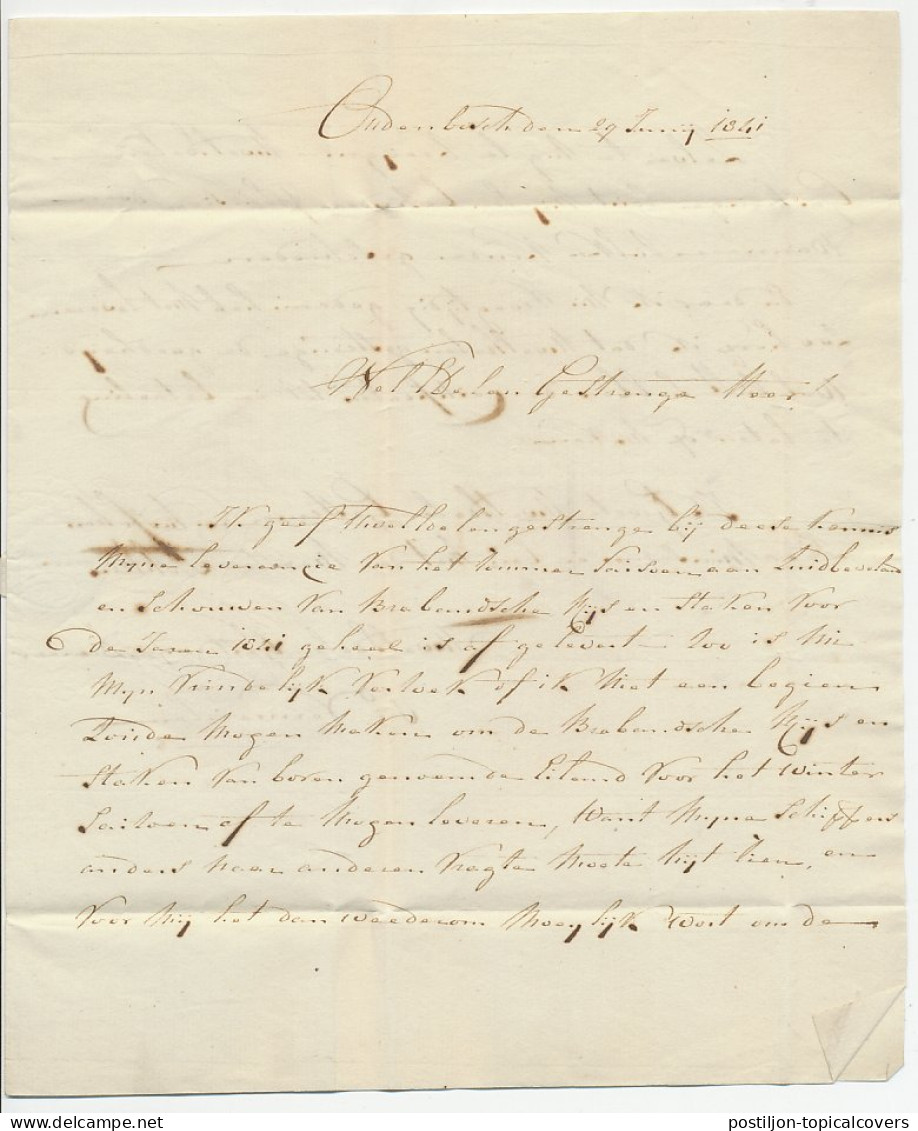 Oudenbosch den 29 Junij 1841
Wel Edelen Gestrenge Heer!
Ik geef UwelEdelengestrenge bij deese kennis
Myne leverensie van het Sommer Saisoen aan Zuidbeveland
en Schouwen van Brabandsche Rijs en Staken voor
de Jaren 1841 geheel is af gelevert zoo is Nu
Mijn vrindelijk verzoek of ik Niet een begien
Zoude Mogen Maken om de Brabandsche Rijs en
Staken van boven genoemde Eiland voor het winter
Saisoen af te Mogen leveren, want Myne Schippers
anders naar anderen vragte Moete uijt zien, en
voor Mij het dan weederom Moeylijk wort om de
postiljon-topicalcovers